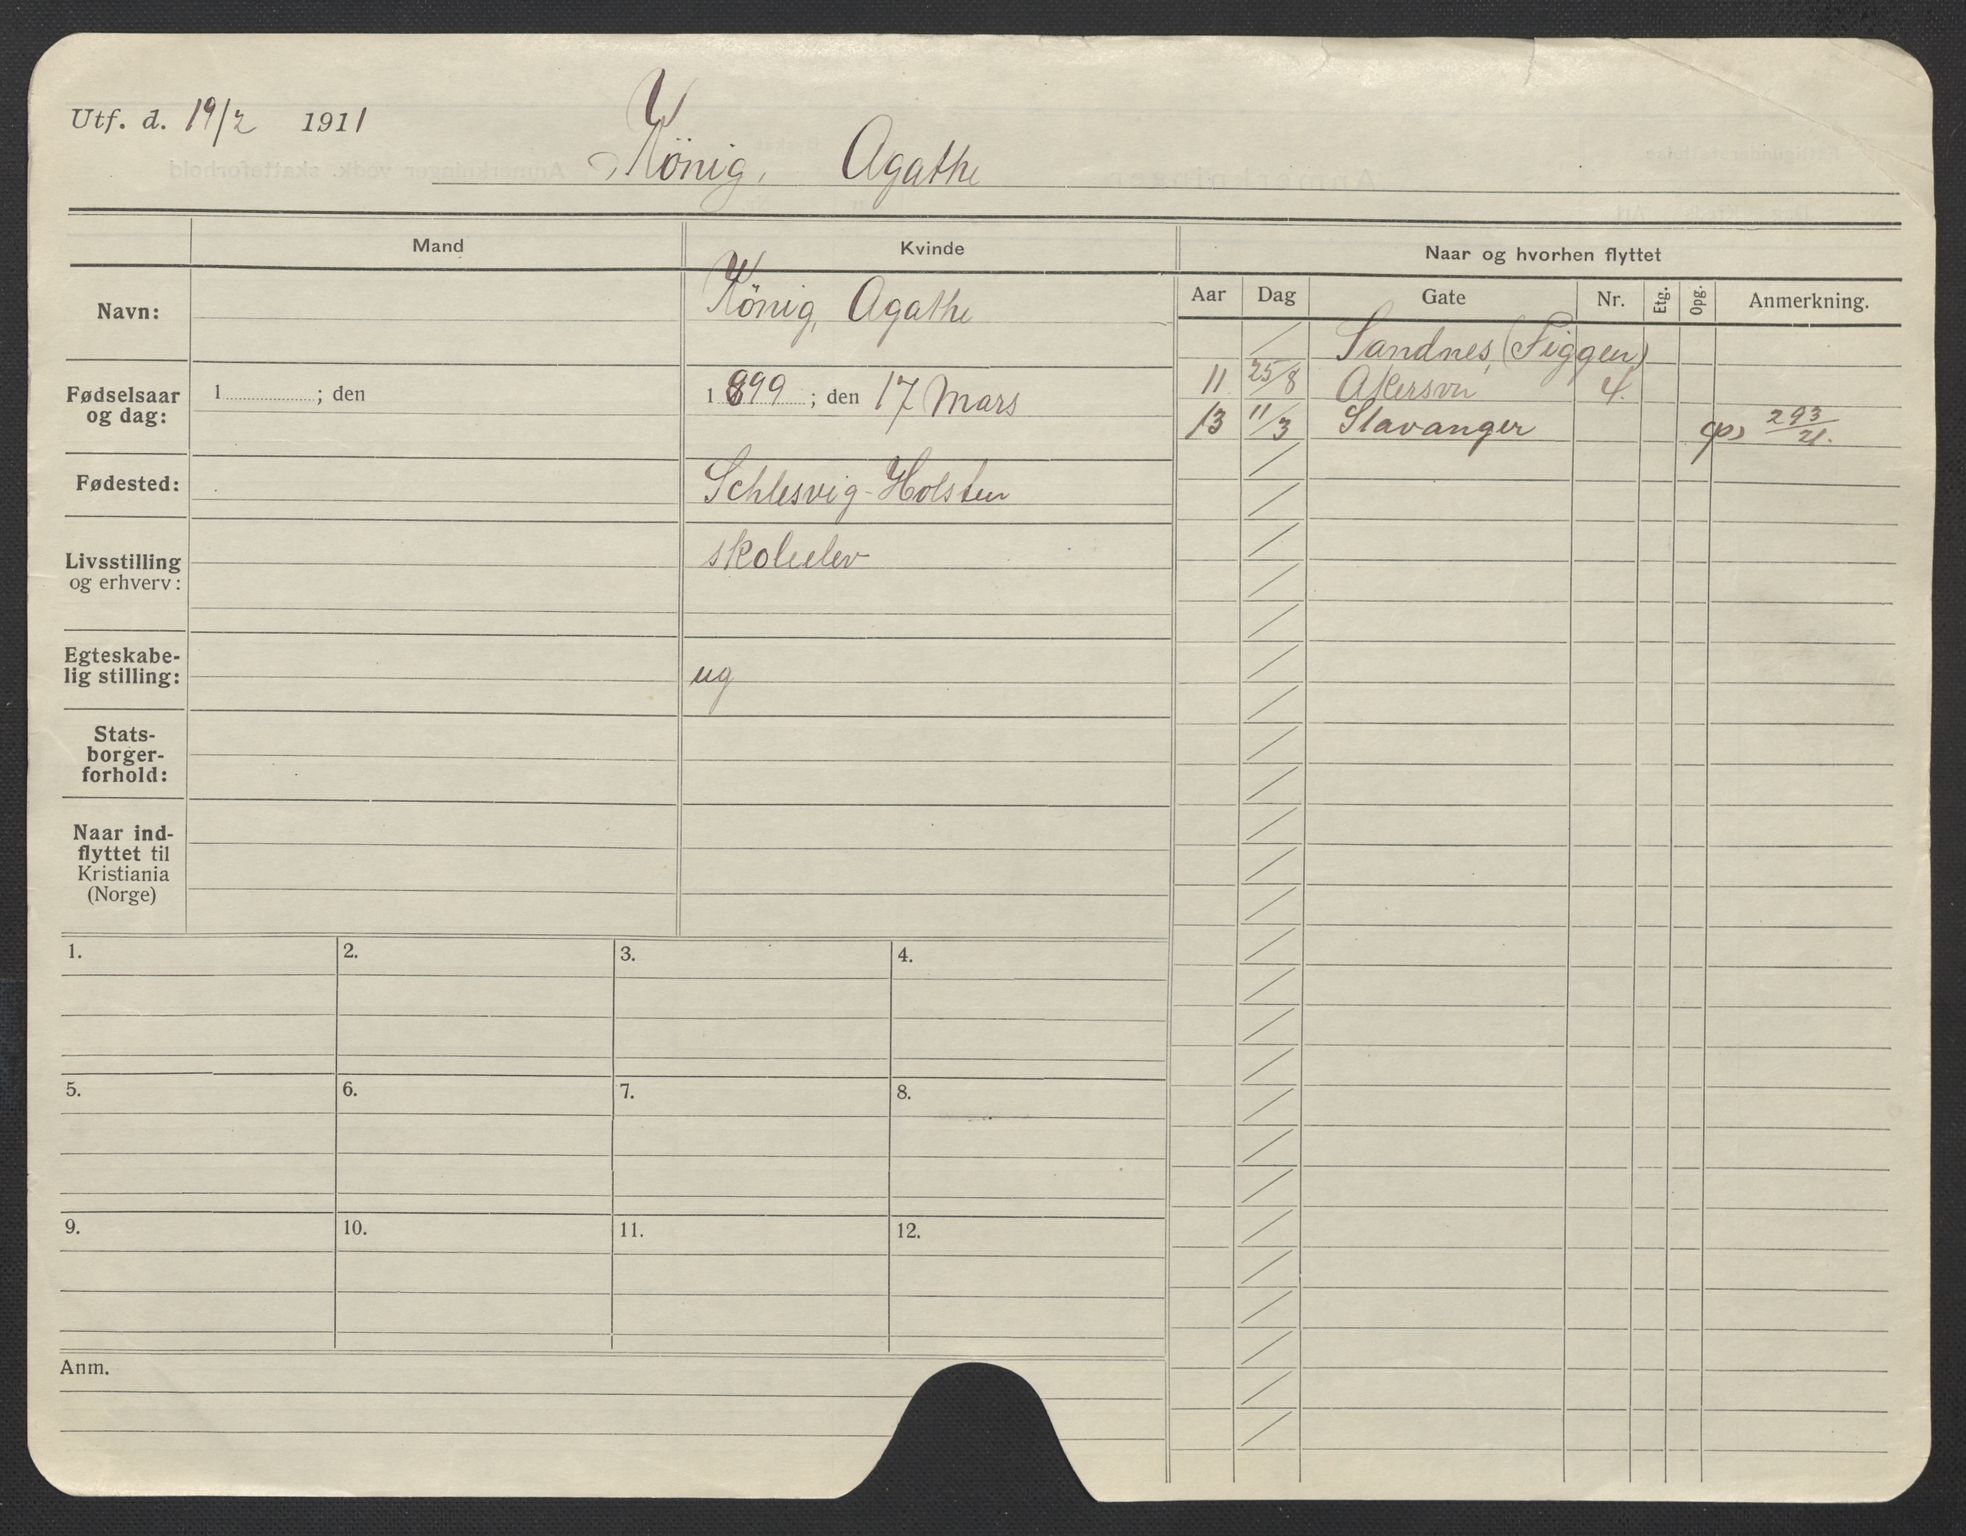 Utf. d. 19/2 1911
König, Agathe
Mand
Kvinde
Naar og hvorhen flyttet
Navn:
König, Agathe
Aar Dag Gate Nr. Etg. Opg. Anmerkning.
Sandnes, (Figgen)
11 25/8 Akersvn 4.
13 11/3 Stavanger 293/21.
Fødselsaar
og dag:
1 ; den
1899 ; den 17 Mars
Fødested:
Schlesvig-Holsten
Livsstilling
og erhverv:
skoleelev
Egteskabe-
lig stilling:
ug
Stats-
borger-
forhold:
Naar ind-
flyttet til
Kristiania
(Norge)
1. 2. 3. 4.
5. 6. 7. 8.
9. 10. 11. 12.
Anm.